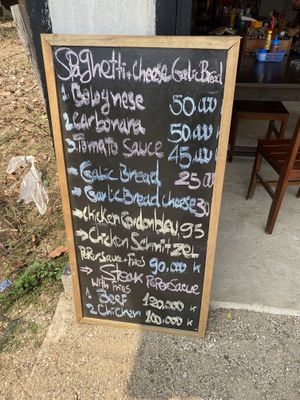 Spaghetti + Cheese Galic Bread
1 Bolognese 50.000
2. Carbonara 50.000
3. Tomato Sauce 45.000
→ Galic Bread 25.000
→ Garlic Bread cheese 30
→ Chicken Cordon bleu 95
→ Chicken Schnitzel
PePer Sauce + Fries 90.000 K
→ Steak PePer Sauce
With Fries
1 Beef 120.000 K
2 Chicken 100.000 K